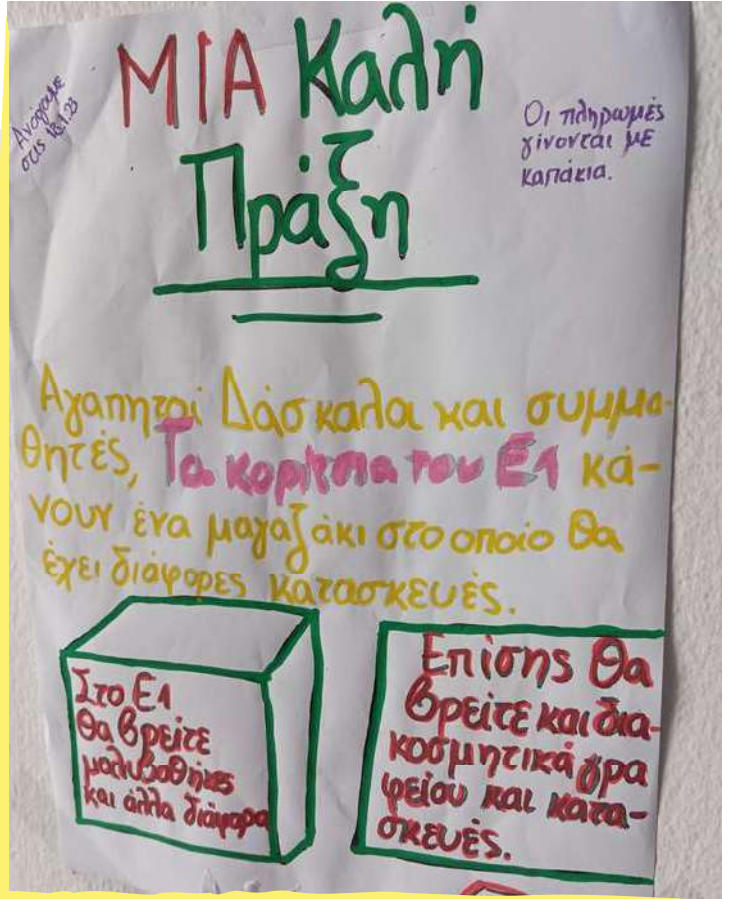 ΜΙΑ Καλή
Πράξη
Ανοίγουμε
στις 18.1.23
Οι πληρωμές
γίνονται με
καπάκια.
Αγαπητοί Δάσκαλοι και συμμα-
θητές, Τα κορίτσια του Ε1 κά-
νουν ένα μαγαζάκι στο οποίο θα
έχει διάφορες κατασκευές.
Στο Ε1
θα βρείτε
μολυβοθήκες
και άλλα διάφορα
Επίσης θα
βρείτε και δια-
κοσμητικά γρα
φείου και κατα-
σκευές.